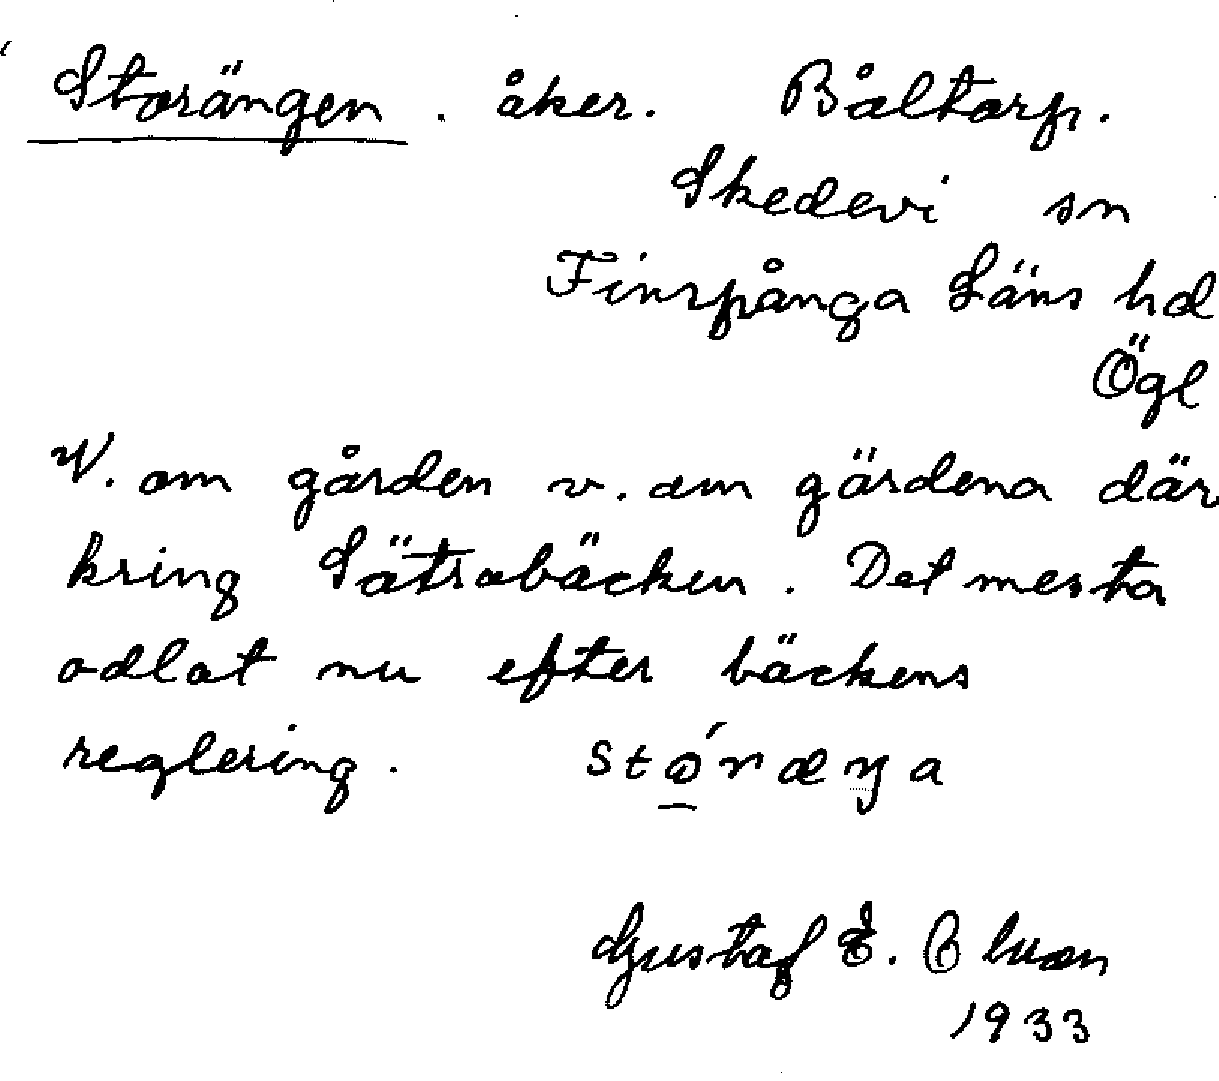 Storängen. åker. Båltorp.
Skedevi sn
Finspånga Läns hd
Ögl
V. om gården v. om gärdena där
kring Sätrabäcken. Det mesta
odlat nu efter bäckens
reglering. stó̠ræŋa
Gustaf E.
1933